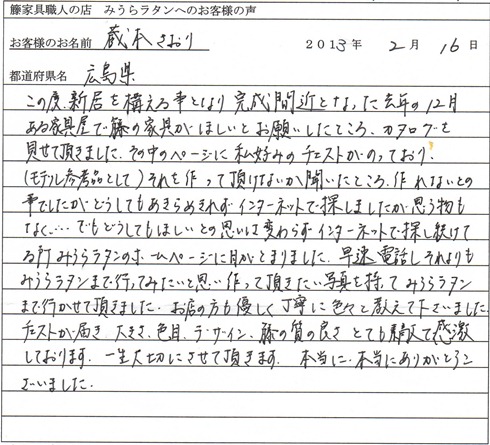 籐家具職人の店　みうらラタンへのお客様の声
お客様のお名前　蔵本さおり　2013年 2月 16日
都道府県名　広島県
この度、新居を構える事となり 完成間近となった去年の12月
ある家具屋で籐の家具がほしいとお願いしたところ、カタログを
見せて頂きました。その中のページに私好みのチェストがのっており、
(モデル参考品として)それを作って頂けないか聞いたところ、作れないとの
事でしたがどうしてもあきらめきれずインターネットで探しましたが思う物も
なく….. でもどうしてもほしいとの思いは変わらずインターネットで探し続けて
る所みうらラタンのホームページに目がとまりました。早速電話しそれよりも
みうらラタンまで行ってみたいと思い作って頂きたい写真を持ってみうらラタン
まで行かせて頂きました。お店の方も優しく丁寧に色々と教えて下さいました。
チェストが届き 大きさ、色目、デザイン、籐の質の良さ とても 感激
しております。一生大切にさせて頂きます。本当に、本当にありがとうご
ざいました.